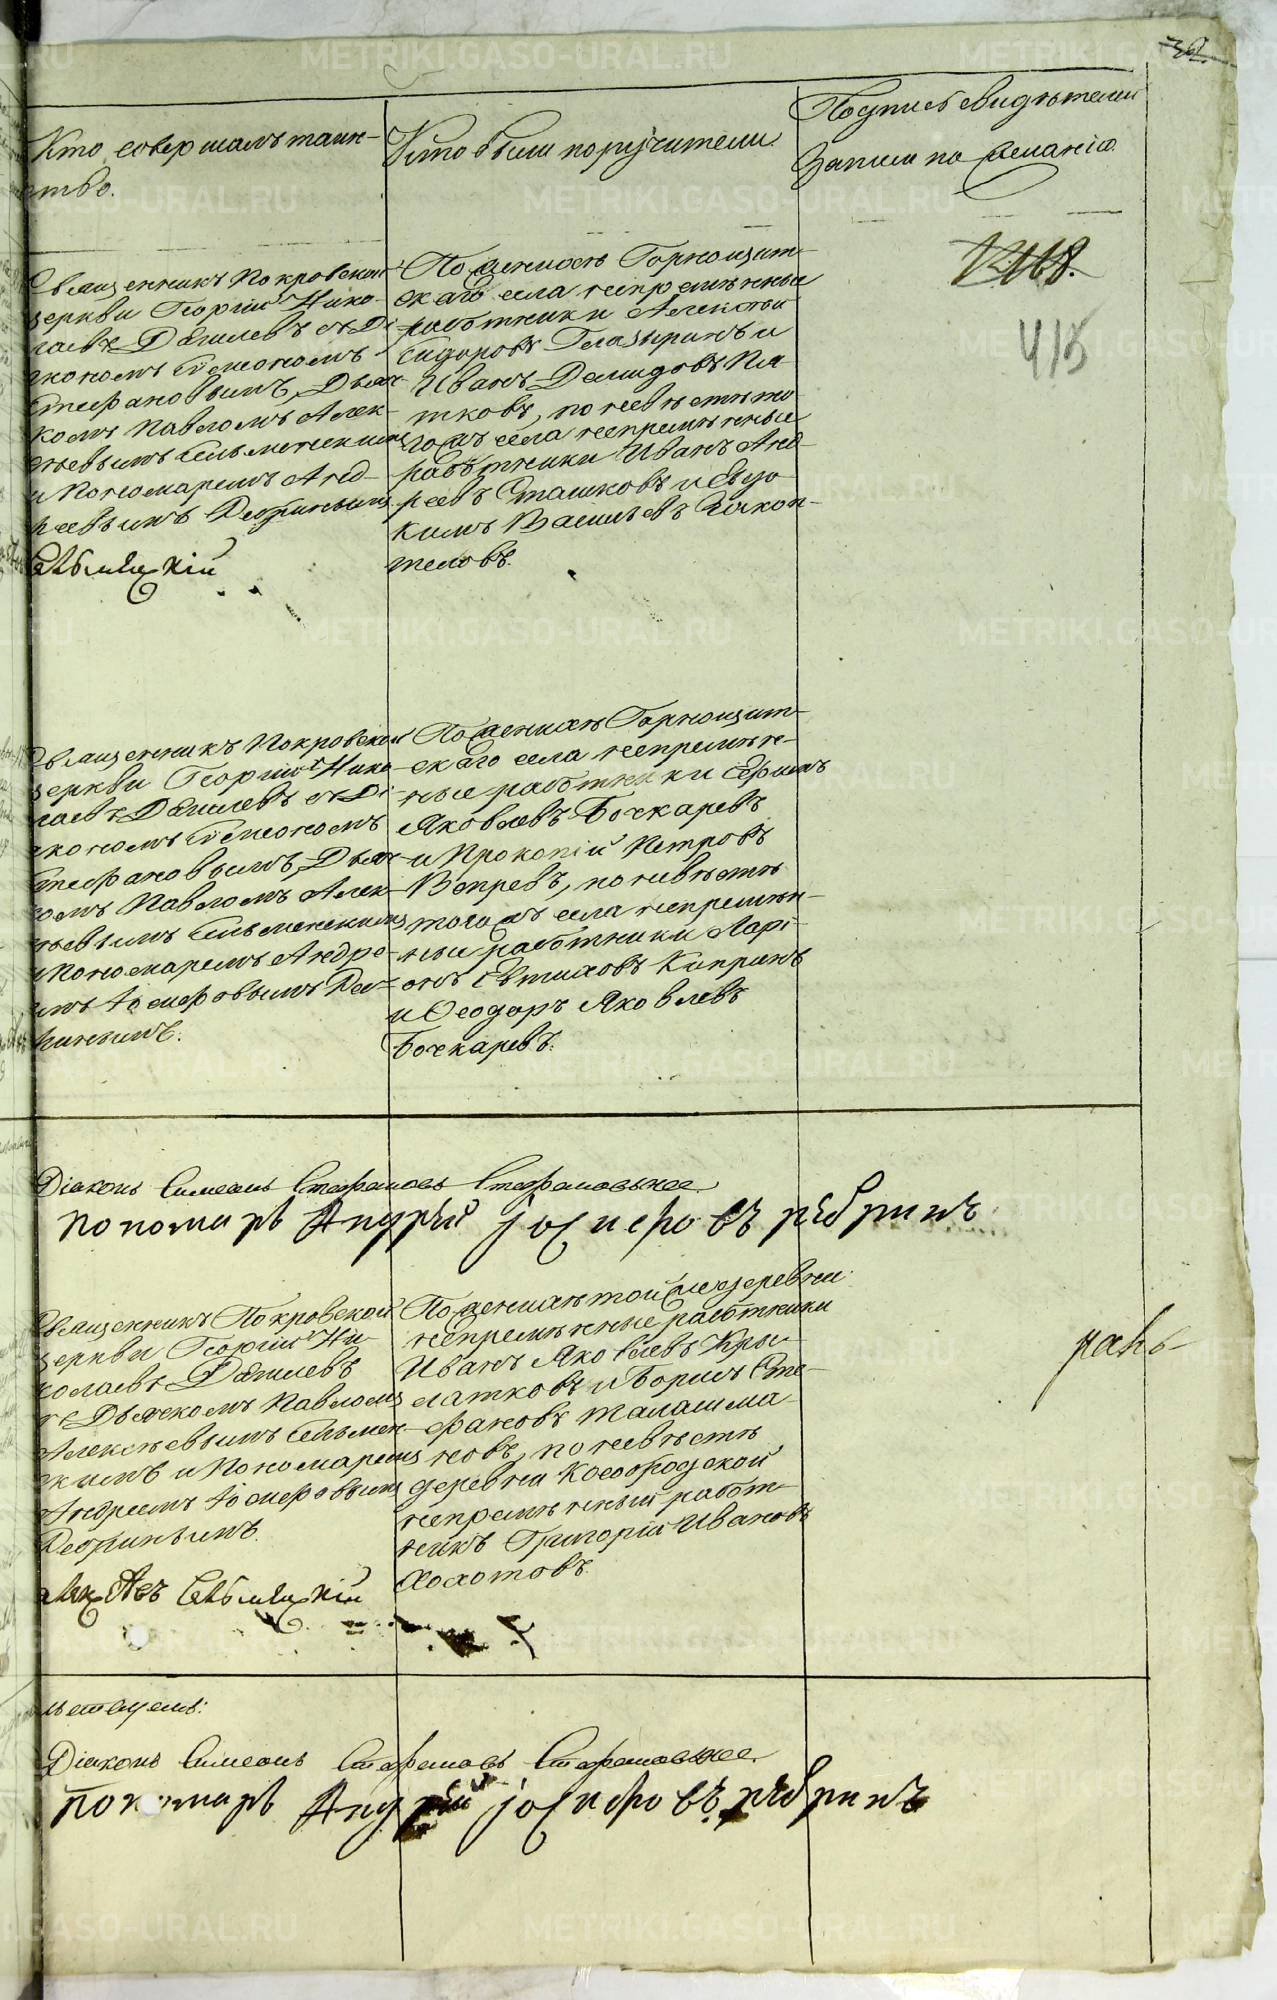 Кто совершалъ таин-
ство.
Кто были поручители
Подпись свидѣтелей
записи по желанію.
1216 8.
415
Священникъ Покровской
церкви Георгій Нико-
лаевъ Дягилевъ съ Ді
якономъ Симеономъ
Стефановымъ, Дьяч-
комъ Павломъ Алек-
сѣевымъ Сельменскимъ
и Пономаремъ Анд-
реевымъ Ребринымъ
По женихѣ Горнощит-
скаго села непремѣнные
работники Алексѣй
Сидоровъ Глазыринъ и
Иванъ Демидовъ Пя-
тковъ, по невѣстѣ то
гожъ села непремѣнные
работники Иванъ Анд-
реевъ Сташковъ и Евдо
кимъ Васильевъ Закоп-
теловъ.
Священникъ Покровской
церкви Георгій Нико-
лаевъ Дягилевъ съ Ді-
якономъ Симеономъ
Стефановымъ, Дьяч-
комъ Павломъ Алек-
сѣевымъ Сельменскимъ
и Пономаремъ Андре-
емъ Іосифовымъ Реб-
ринымъ.
По женихѣ Горнощит-
скаго села непремѣн-
ные работники Ефимъ
Яковлевъ Бочкаревъ
и Прокопій Петровъ
Вепревъ, по невѣстѣ
тогожъ села непремѣн-
ные работники Ларі-
онъ Евтиховъ Кипринъ
и Ѳеодоръ Яковлевъ
Бочкаревъ.
Діаконъ Симеонъ Стефановъ Стефановыхъ
пономарь Андрѣй іосифовъ рѣбринъ
Священникъ Покровской
церкви Георгій Ни-
колаевъ Дягилевъ
съ Дьячкомъ Павломъ
Алексѣевымъ Сельмен-
скимъ и Пономаремъ
Андреемъ Іосифовымъ
Ребринымъ.
По женихѣ той же деревни
непремѣнные работники
Иванъ Яковлевъ Кры-
латковъ и Борисъ Сте-
фановъ Талашма-
новъ, по невѣстѣ
деревни Кособродской
непремѣнный работ-
никъ Григорій Ивановъ
Хохотовъ.
Діаконъ Симеонъ Стефановъ Стефановыхъ
пономарь Андрѣй іосифовъ рѣбринъ
METRIKI.GASO-URAL.RU